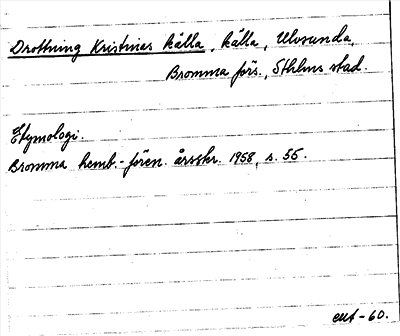 Drottning Kristinas källa, källa, Ulvsunda,
Bromma förs., Sthlms stad.
Etymologi.
Bromma hemb.-fören. årsskr. 1958, s. 55.
-60.